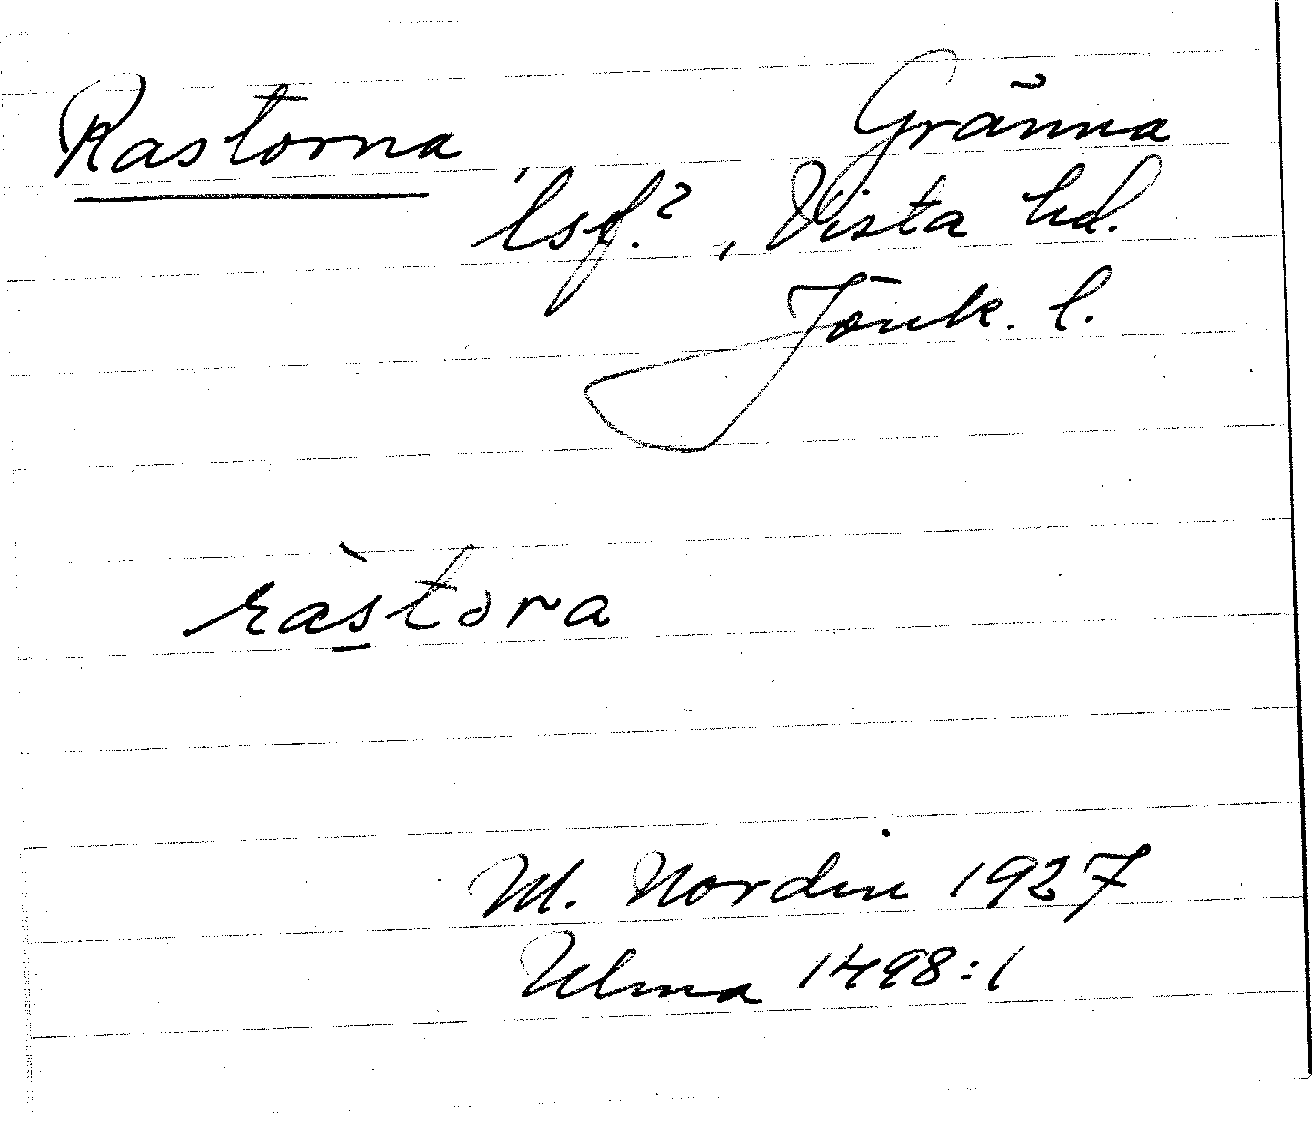 Rastorna
Gränna
lsf.?, Vista hd.
Jönk. l.
ràstora
M. Nordin 1927
Ulma 1498:1